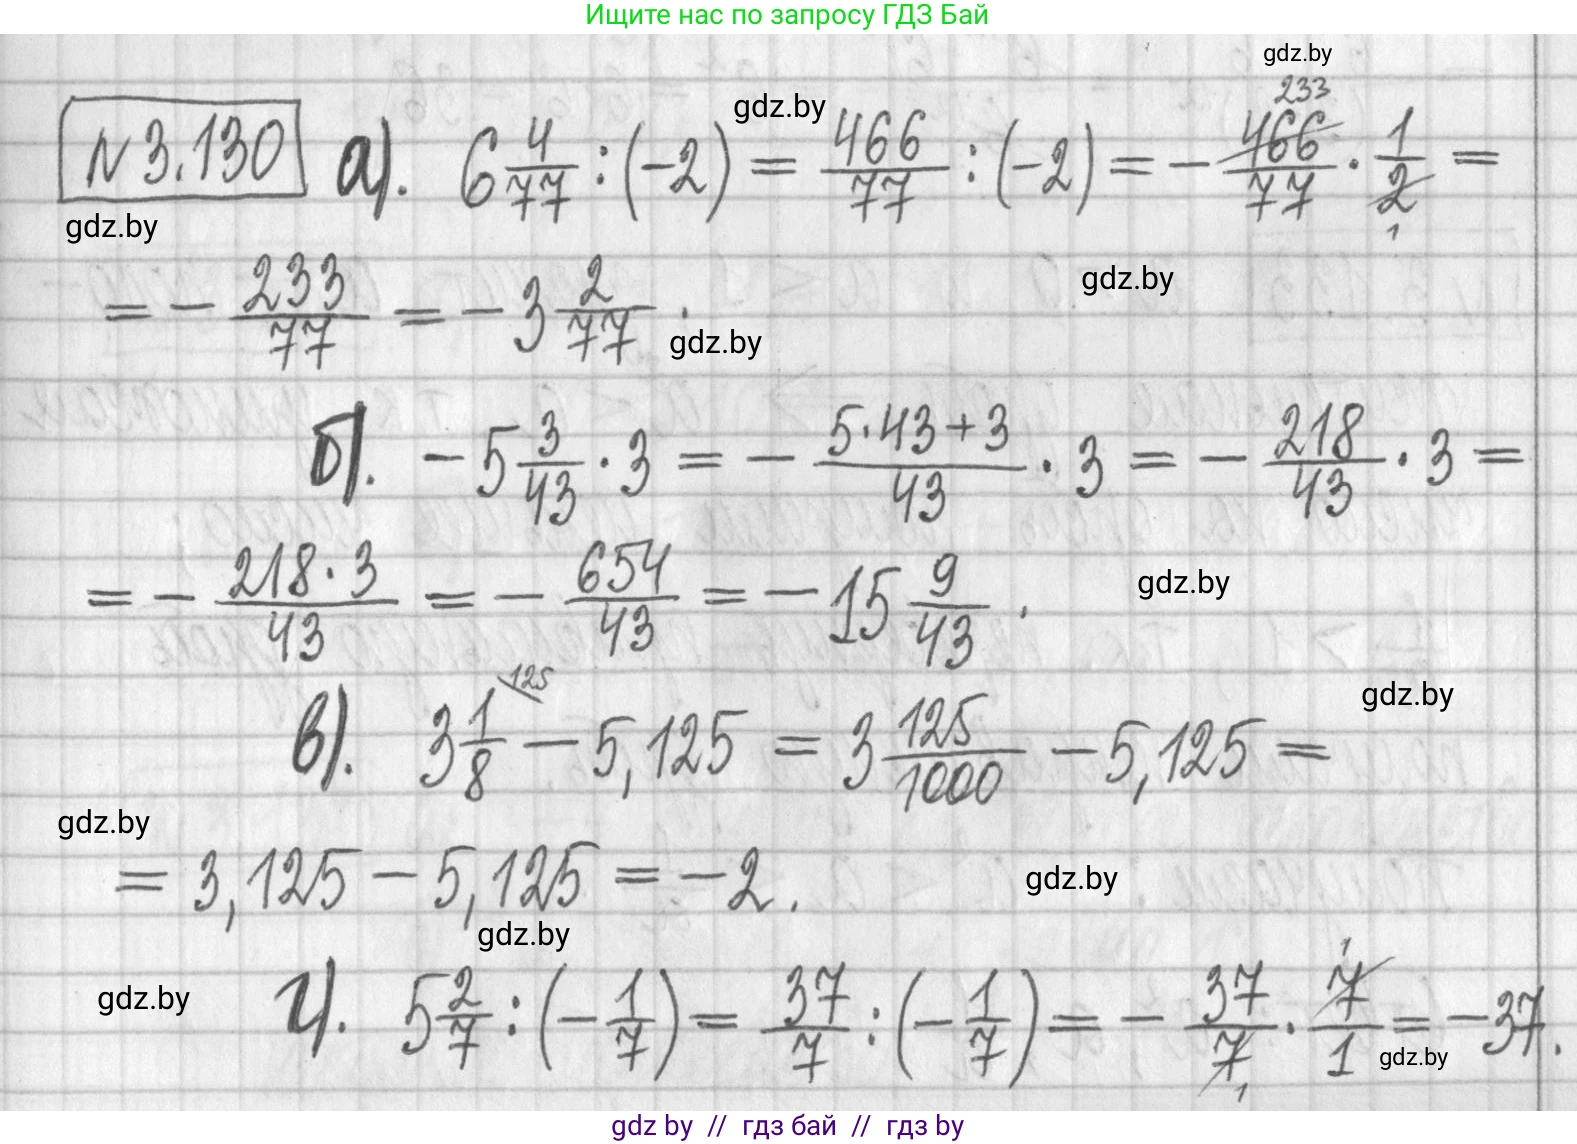 Ищите нас по запросу ГДЗ Бай
gdz.by
gdz.by
№3.130 а). 6 4/77 : (-2) = 466/77 : (-2) = - 466/77 · 1/2 =
233
1
gdz.by
gdz.by
= - 233/77 = -3 2/77.
gdz.by
б). -5 3/43 · 3 = - (5·43+3)/43 · 3 = - 218/43 · 3 =
= - (218·3)/43 = - 654/43 = -15 9/43.
gdz.by
125
gdz.by
в). 3 1/8 - 5,125 = 3 125/1000 - 5,125 =
gdz.by
= 3,125 - 5,125 = -2.
gdz.by
gdz.by
gdz.by
г). 5 2/7 : (-1/7) = 37/7 : (-1/7) = - 37/7 · 7/1 = -37.
1
1
gdz.by
gdz by // гдз бай // гдз by